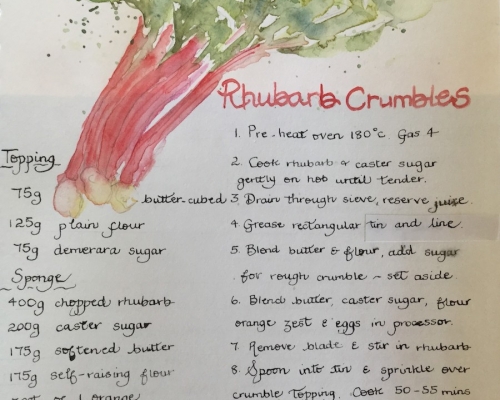 Rhubarb Crumbles
Topping
75g butter-cubed
125g plain flour
75g demerara sugar
Sponge
400g chopped rhubarb
200g caster sugar
175g softened butter
175g self-raising flour
zest of 1 orange
1. Pre-heat oven 180°c Gas 4
2. Cook rhubarb & caster sugar
gently on hob until tender.
3. Drain through sieve, reserve juice.
4 Grease rectangular tin and line.
5. Blend butter & flour, add sugar
for rough crumble - set aside.
6. Blend butter, caster sugar, flour
orange zest & eggs in processor.
7. Remove blade & stir in rhubarb
8. Spoon into tin & sprinkle over
crumble topping. Cook 50-55 mins